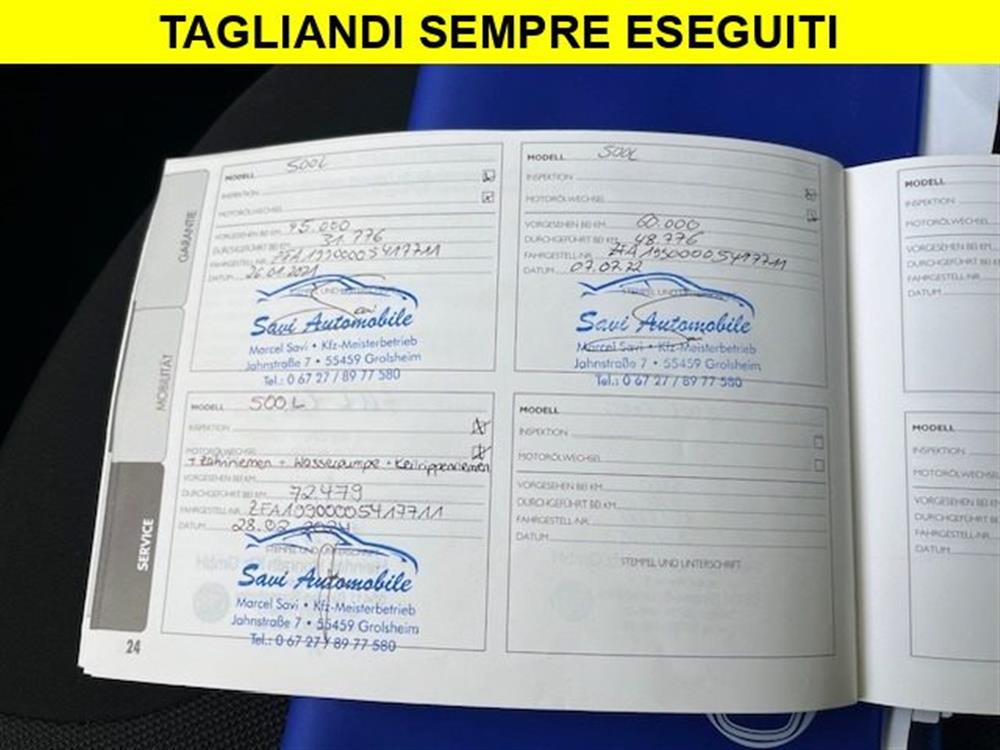 TAGLIANDI SEMPRE ESEGUITI
GARANTIE
MOBILITÄT
SERVICE
MODELL 500L
INSPEKTION
MOTORÖLWECHSEL
VORGESEHEN BEI KM 45.000
DURCHGEFÜHRT BEI KM 31.776
FAHRGESTELL-NR. ZFA19900005417711
DATUM 26.01.2021
STEMPEL UND UNTERSCHRIFT
Savi Automobile
Marcel Savi • Kfz-Meisterbetrieb
Jahnstraße 7 • 55459 Grolsheim
Tel.: 0 67 27 / 89 77 580
MODELL 500L
INSPEKTION
MOTORÖLWECHSEL
VORGESEHEN BEI KM 60.000
DURCHGEFÜHRT BEI KM 48.776
FAHRGESTELL-NR. ZFA19900005417711
DATUM 07.07.22
STEMPEL UND UNTERSCHRIFT
Savi Automobile
Marcel Savi • Kfz-Meisterbetrieb
Jahnstraße 7 • 55459 Grolsheim
Tel.: 0 67 27 / 89 77 580
MODELL 500L
INSPEKTION
MOTORÖLWECHSEL
+ Zahnriemen + Wasserpumpe + Keilrippenriemen
VORGESEHEN BEI KM
DURCHGEFÜHRT BEI KM 72.479
FAHRGESTELL-NR. ZFA19900005417711
DATUM 28.02.2024
STEMPEL UND UNTERSCHRIFT
Savi Automobile
Marcel Savi • Kfz-Meisterbetrieb
Jahnstraße 7 • 55459 Grolsheim
Tel.: 0 67 27 / 89 77 580
MODELL
INSPEKTION
MOTORÖLWECHSEL
VORGESEHEN BEI KM
DURCHGEFÜHRT BEI KM
FAHRGESTELL-NR.
DATUM
STEMPEL UND UNTERSCHRIFT
24
MODELL
INSPEKTION
MOTORÖLWECHSEL
VORGESEHEN BEI KM
DURCHGEFÜHRT BEI KM
FAHRGESTELL-NR.
DATUM
MODELL
INSPEKTION
MOTORÖLWECHSEL
VORGESEHEN BEI KM
DURCHGEFÜHRT BEI
FAHRGESTELL-NR.
DATUM